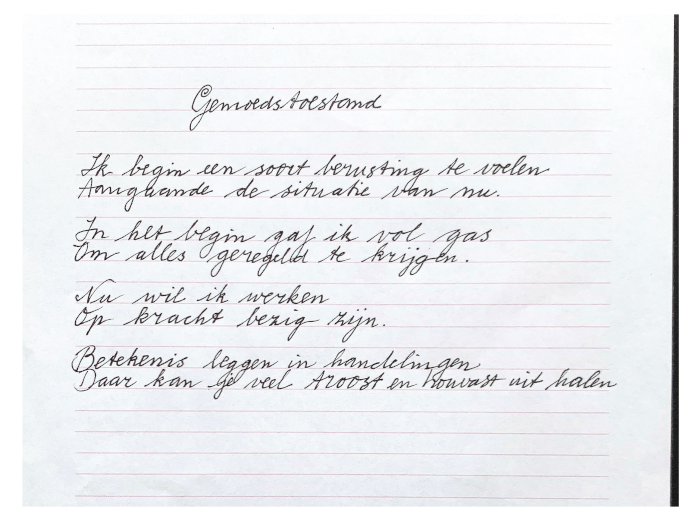 Gemoedstoestand
Ik begin een soort berusting te voelen
Aangaande de situatie van nu.
In het begin gaf ik vol gas
Om alles geregeld te krijgen.
Nu wil ik werken
Op kracht bezig zijn.
Betekenis leggen in handelingen
Daar kan je veel troost en houvast uit halen